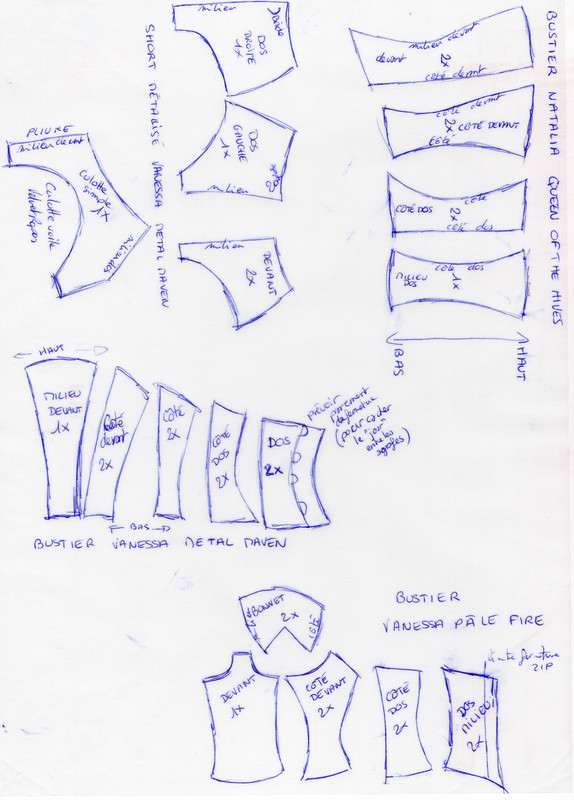 SHORT MÉTALISÉ VANESSA METAL MAVEN
milieu
DOS
DROITE
1X
DOS
GAUCHE
1X
milieu
milieu
DEVANT
2X
PLIURE
milieu devant
culotte
simple
1X
milieu dos
Culotte voile
BUSTIER NATALIA QUEEN OF THE HIVES
milieu devant
devant
2X
coté devant
coté devant
2X COTÉ DEVANT
côté
côté
COTÉ DOS
2X
coté dos
coté dos
MILIEU
DOS
1X
BAS
HAUT
HAUT
MILIEU
DEVANT
1X
Coté
devant
2X
Coté
2X
COTÉ
DOS
2X
DOS
2X
prévoir
parement
(pour cacher
le "jour"
entre les
agrafes)
BAS
BUSTIER VANESSA METAL MAVEN
BUSTIER
VANESSA PÂLE FIRE
BONNET
2X
DEVANT
1X
COTÉ
DEVANT
2X
COTÉ
DOS
2X
DOS
MILIEU
2X
ZIP